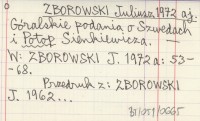 ZBOROWSKI Juliusz 1972 aj.
Góralskie podania o Szwedach
i Potop Sienkiewicza. —
W: ZBOROWSKI J. 1972a: 53-
-68.
Przedruk z: ZBOROWSKI
J. 1962...